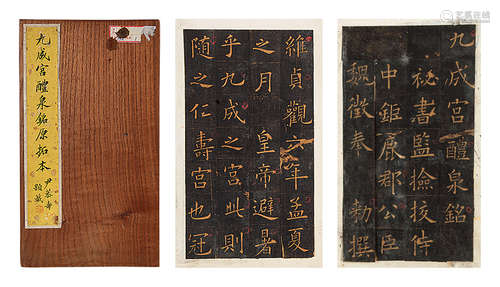 九成宮醴泉銘原拓本
九成宮醴泉銘
秘書監撿挍侍
中鉅鹿郡公臣
魏徵奉 勑撰
維貞觀六年孟夏
之月 皇帝避暑
乎九成之宮此則
隨之仁壽宮也冠